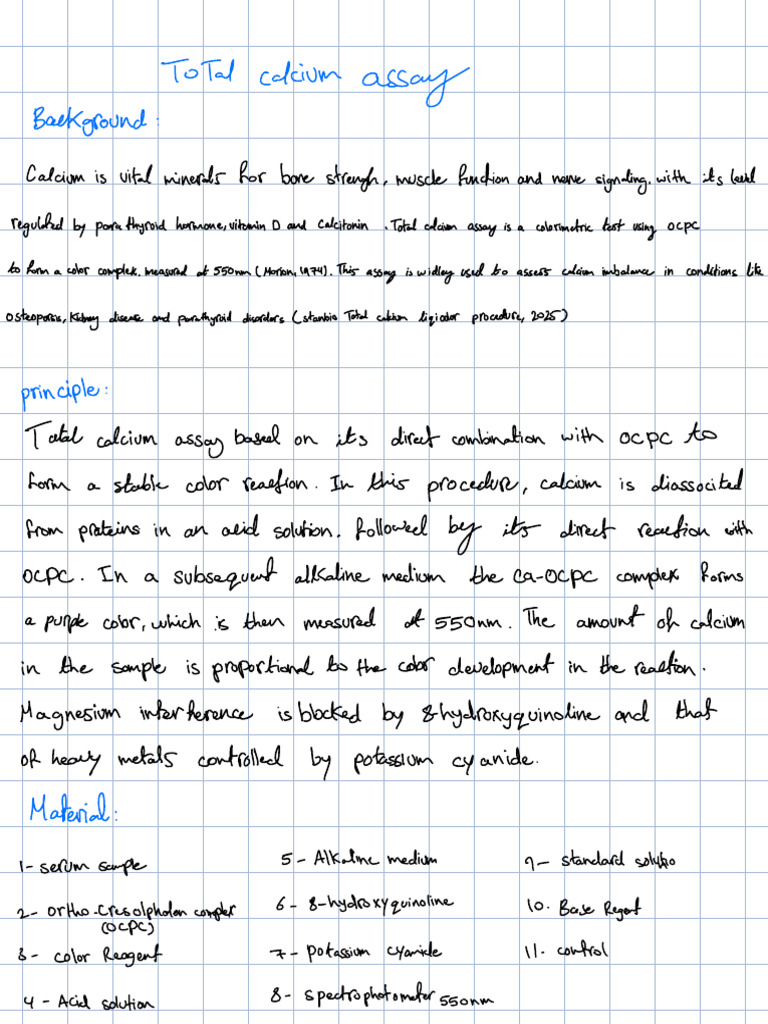 Total calcium assay
Background:
Calcium is vital minerals for bone strengh, muscle function and nerve signaling. with its level
regulated by parathyroid hormone, vitamin D and Calcitonin. Total calcium assay is a colorimetric test using OCPC
to form a color complex. measured at 550nm (Morion, 1974). This assay is widley used to assess calcium imbalance in conditions like
osteoporosis, Kidney disease and parathyroid disorders (stanbio Total calcium liqicolor procedure, 2025)
principle:
Total calcium assay based on its direct combination with OCPC to
form a stable color reaction. In this procedure, calcium is diassocited
from proteins in an acid solution. followed by its direct reaction with
OCPC. In a subsequent alkaline medium the ca-OCPC complex forms
a purple color, which is then measured at 550nm. The amount of calcium
in the sample is proportional to the color development in the reaction.
Magnesium interference is blocked by 8-hydroxyquinoline and that
of heavy metals controlled by potassium cyanide.
Material:
1- serum sample
2- ortho-Cresolphalen complex
(OCPC)
3- color Reagent
4- Acid solution
5- Alkaline medium
6- 8-hydroxyquinoline
7- potassium cyanide
8- spectrophotometer 550nm
9- standard solutio
10. Base Regent
11. control